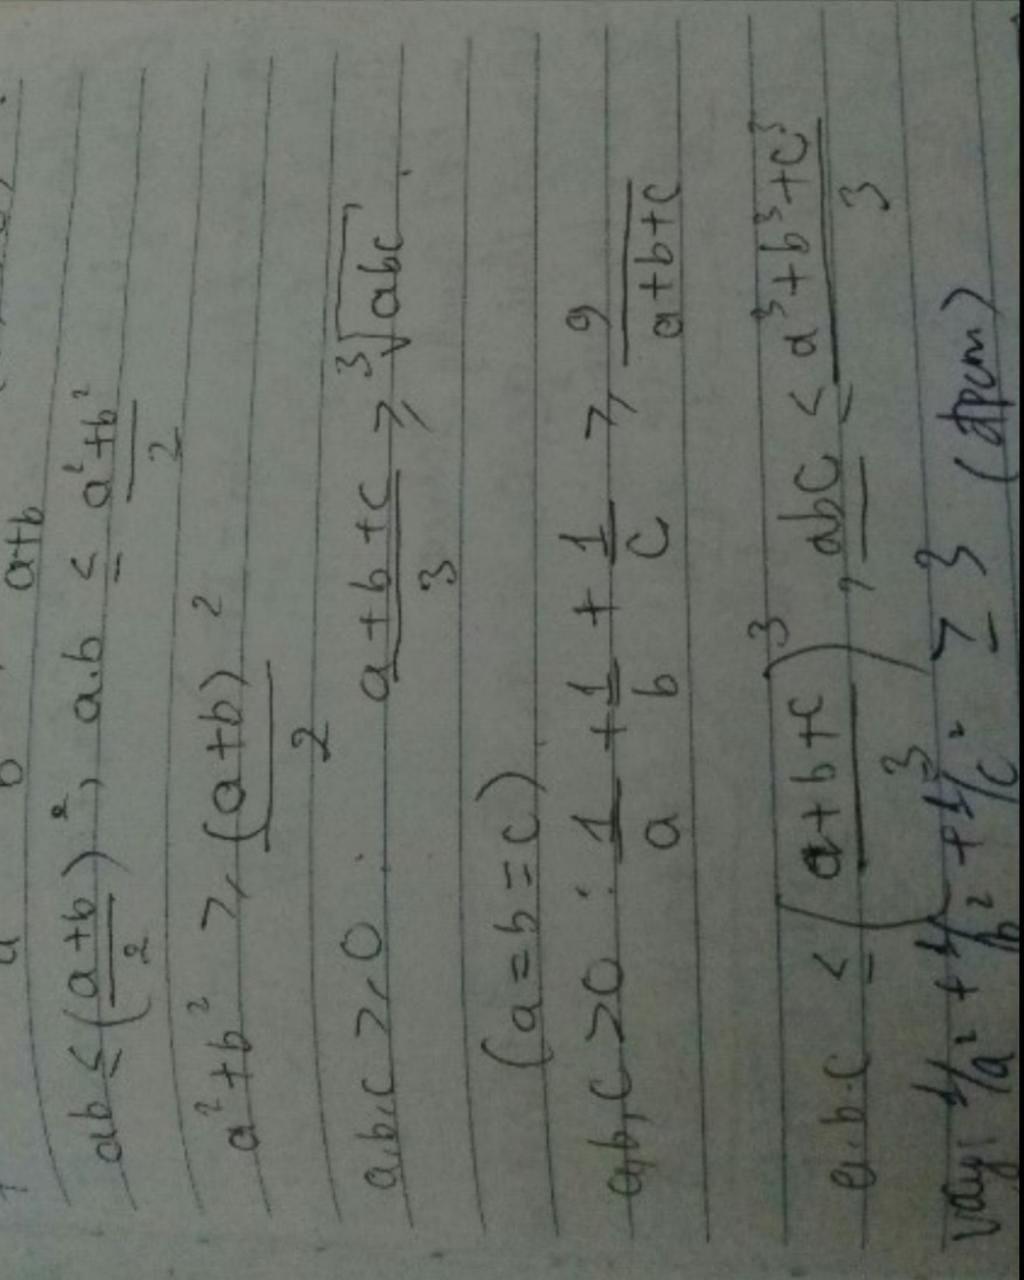 a+b
ab ≤ (a+b/2)², a.b ≤ a²+b²/2
a²+b² ≥ (a+b)²/2
a,b,c ≥ 0 . a+b+c/3 ≥ ³√abc
(a=b=c)
a,b,c >0 : 1/a + 1/b + 1/c ≥ 9/a+b+c
a.b.c ≤ (a+b+c/3)³, abc ≤ a³+b³+c³/3
Vậy: 1/a² + 1/b² + 1/c² ≥ 3 (đpcm)